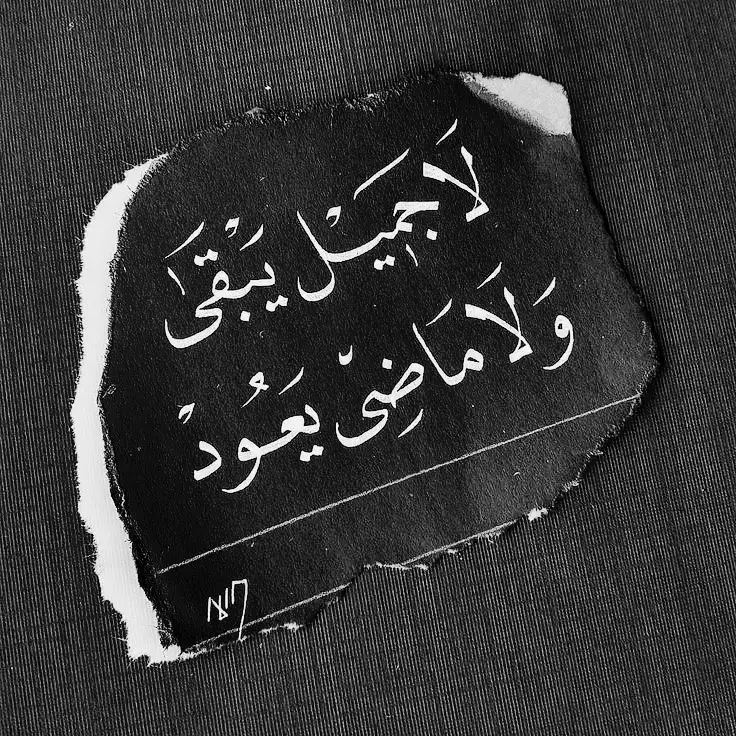 لَا جَمِيْل يَبْقَىٰ
وَلَا مَاضِيْ يَعُودْ